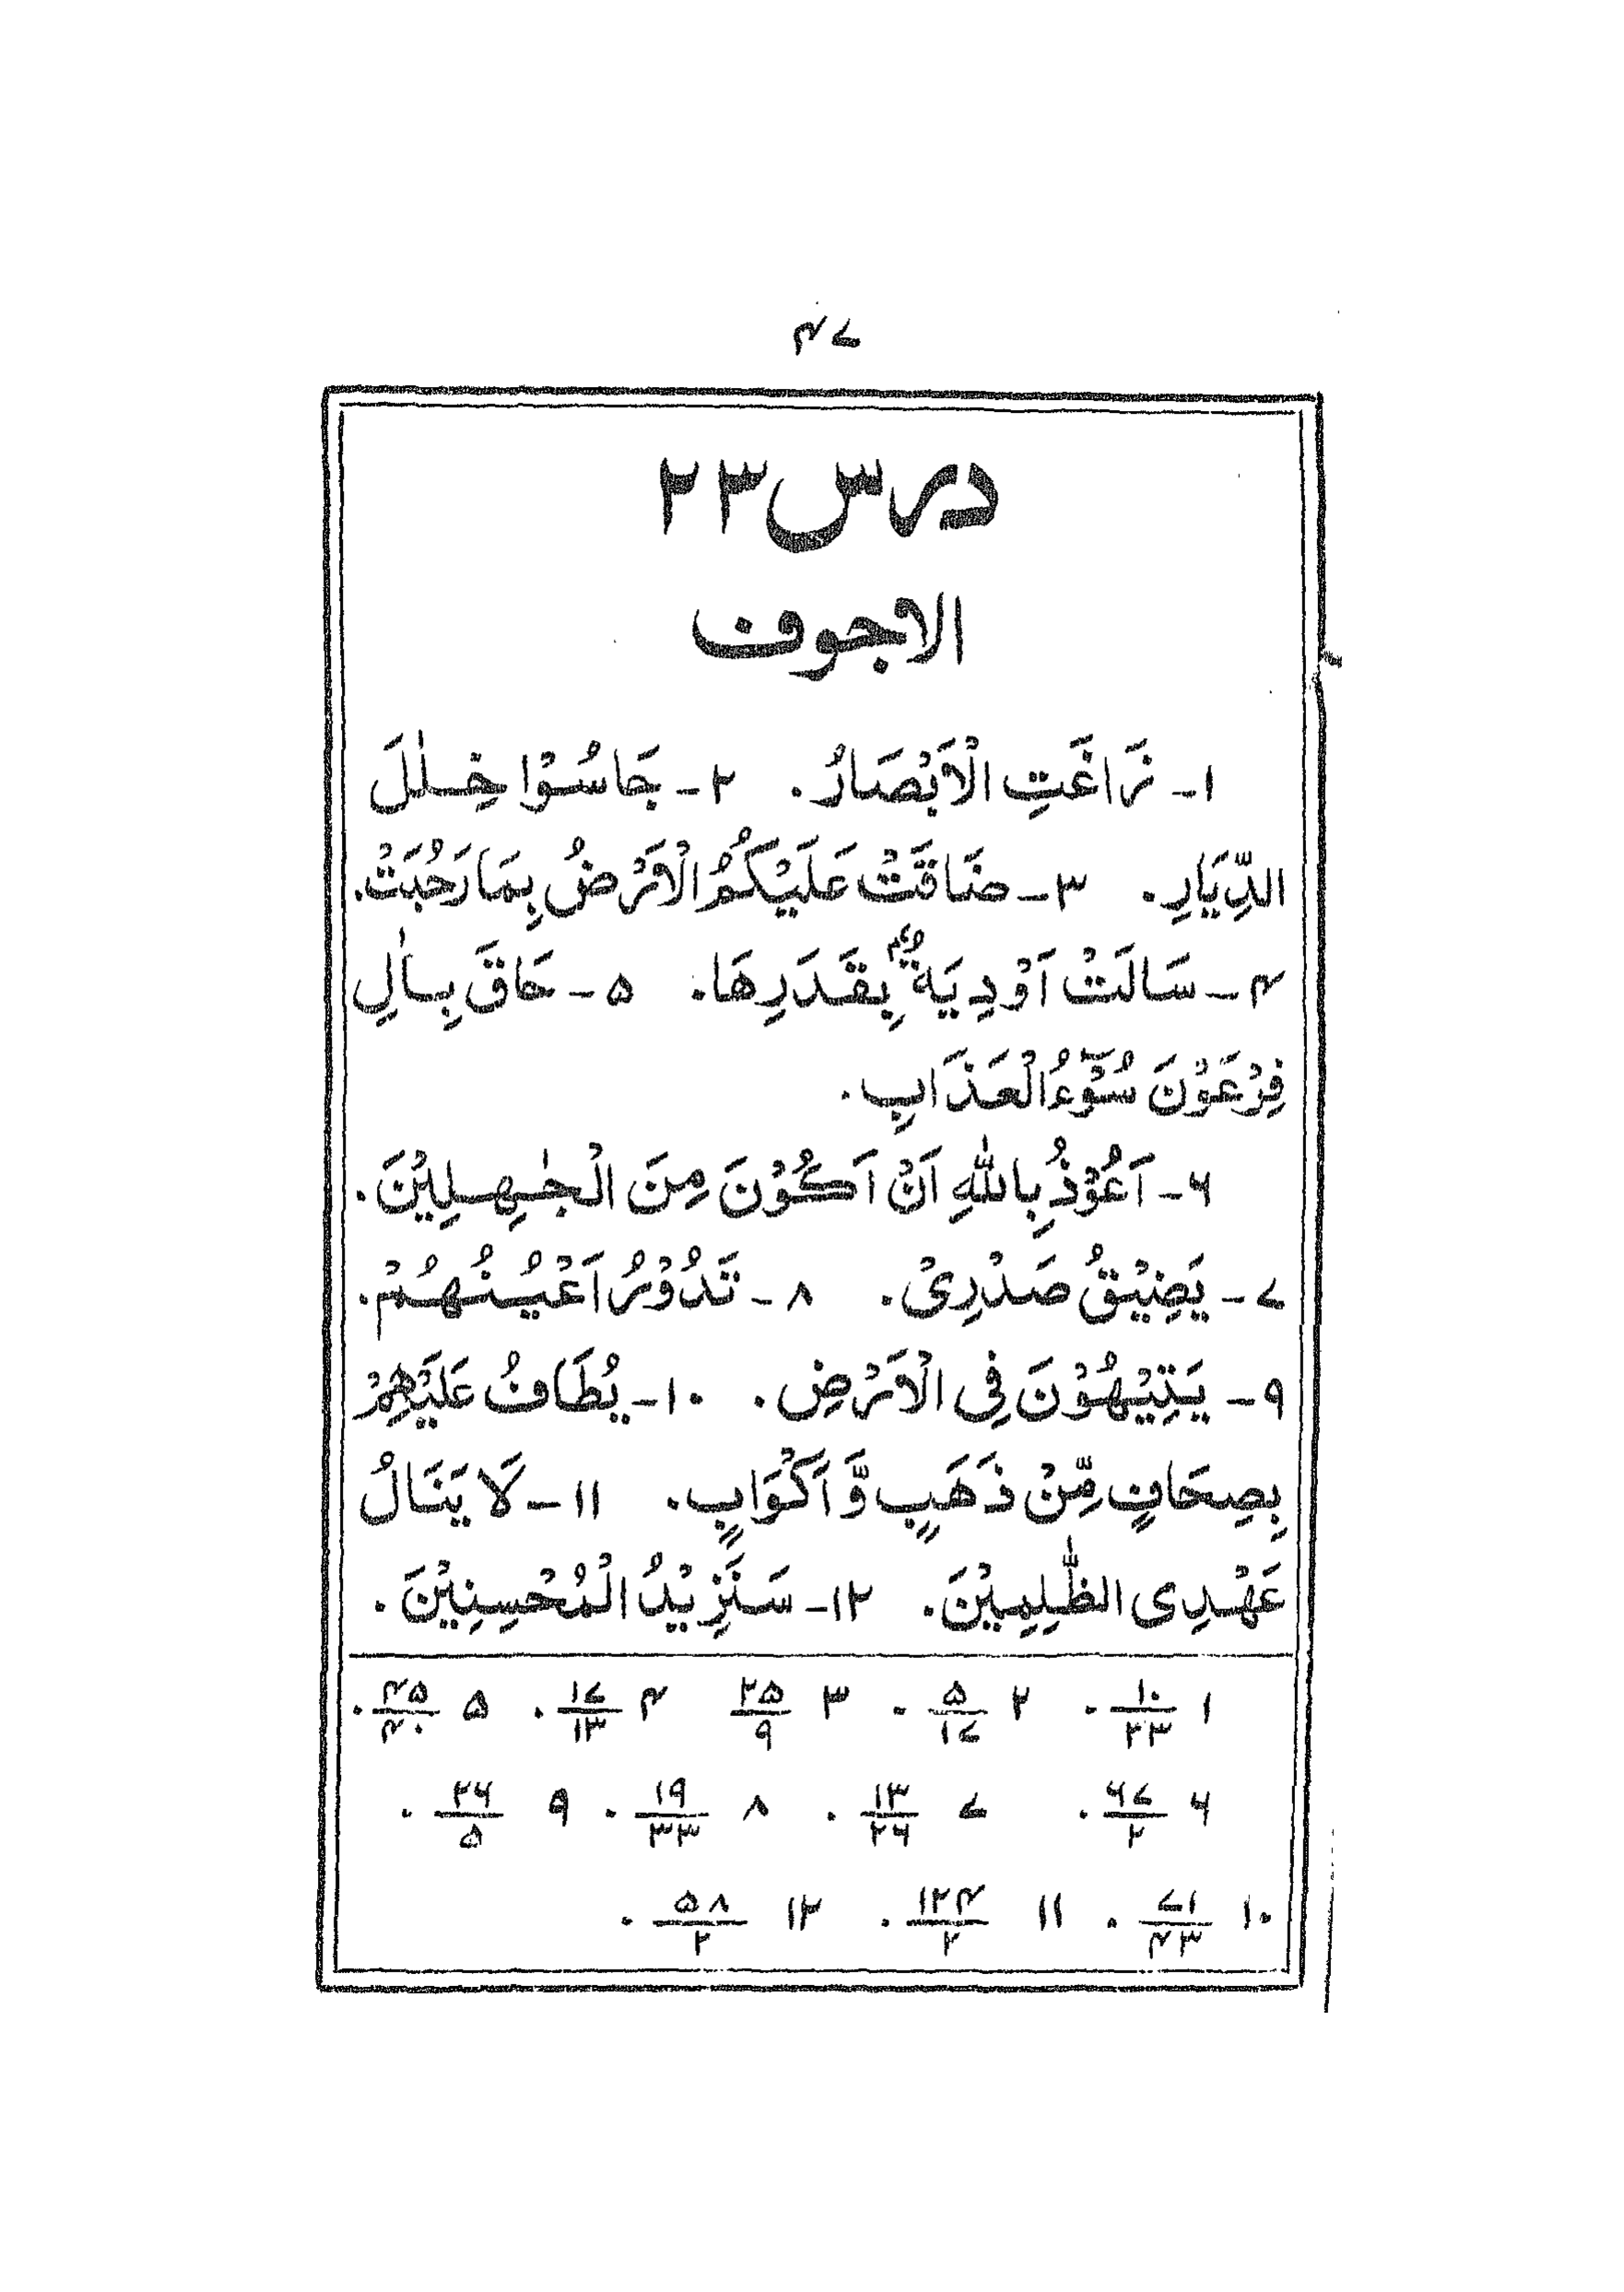 ۴۷
درس ۲۳
الاجوف
۱- زَاغَتِ الْاَبْصَارُ. ۲- جَاسُوْا خِلٰلَ
الدِّيَارِ. ۳- ضَاقَتْ عَلَيْكُمُ الْاَرْضُ بِمَا رَحُبَتْ.
۴- سَالَتْ اَوْدِيَةٌۢ بِقَدَرِهَا. ۵- حَاقَ بِاٰلِ
فِرْعَوْنَ سُوْٓءُ الْعَذَابِ.
۶- اَعُوْذُ بِاللّٰهِ اَنْ اَكُوْنَ مِنَ الْجٰهِلِيْنَ.
۷- يَضِيْقُ صَدْرِىْ. ۸- تَدُوْرُ اَعْيُنُهُمْ.
۹- يَتِيْهُوْنَ فِى الْاَرْضِ. ۱۰- يُطَافُ عَلَيْهِمْ
بِصِحَافٍ مِّنْ ذَهَبٍ وَّ اَكْوَابٍ. ۱۱- لَا يَنَالُ
عَهْدِى الظّٰلِمِيْنَ. ۱۲- سَنَزِيْدُ الْمُحْسِنِيْنَ.
۱ ۱۰/۳۳. ۲ ۵/۱۷. ۳ ۲۵/۹ ۴ ۱۷/۱۳. ۵ ۴۵/۴۰.
۶ ۶۷/۲. ۷ ۱۳/۲۶. ۸ ۱۹/۳۳. ۹ ۲۶/۵.
۱۰ ۷۱/۴۳. ۱۱ ۱۲۴/۲. ۱۲ ۵۸/۲.